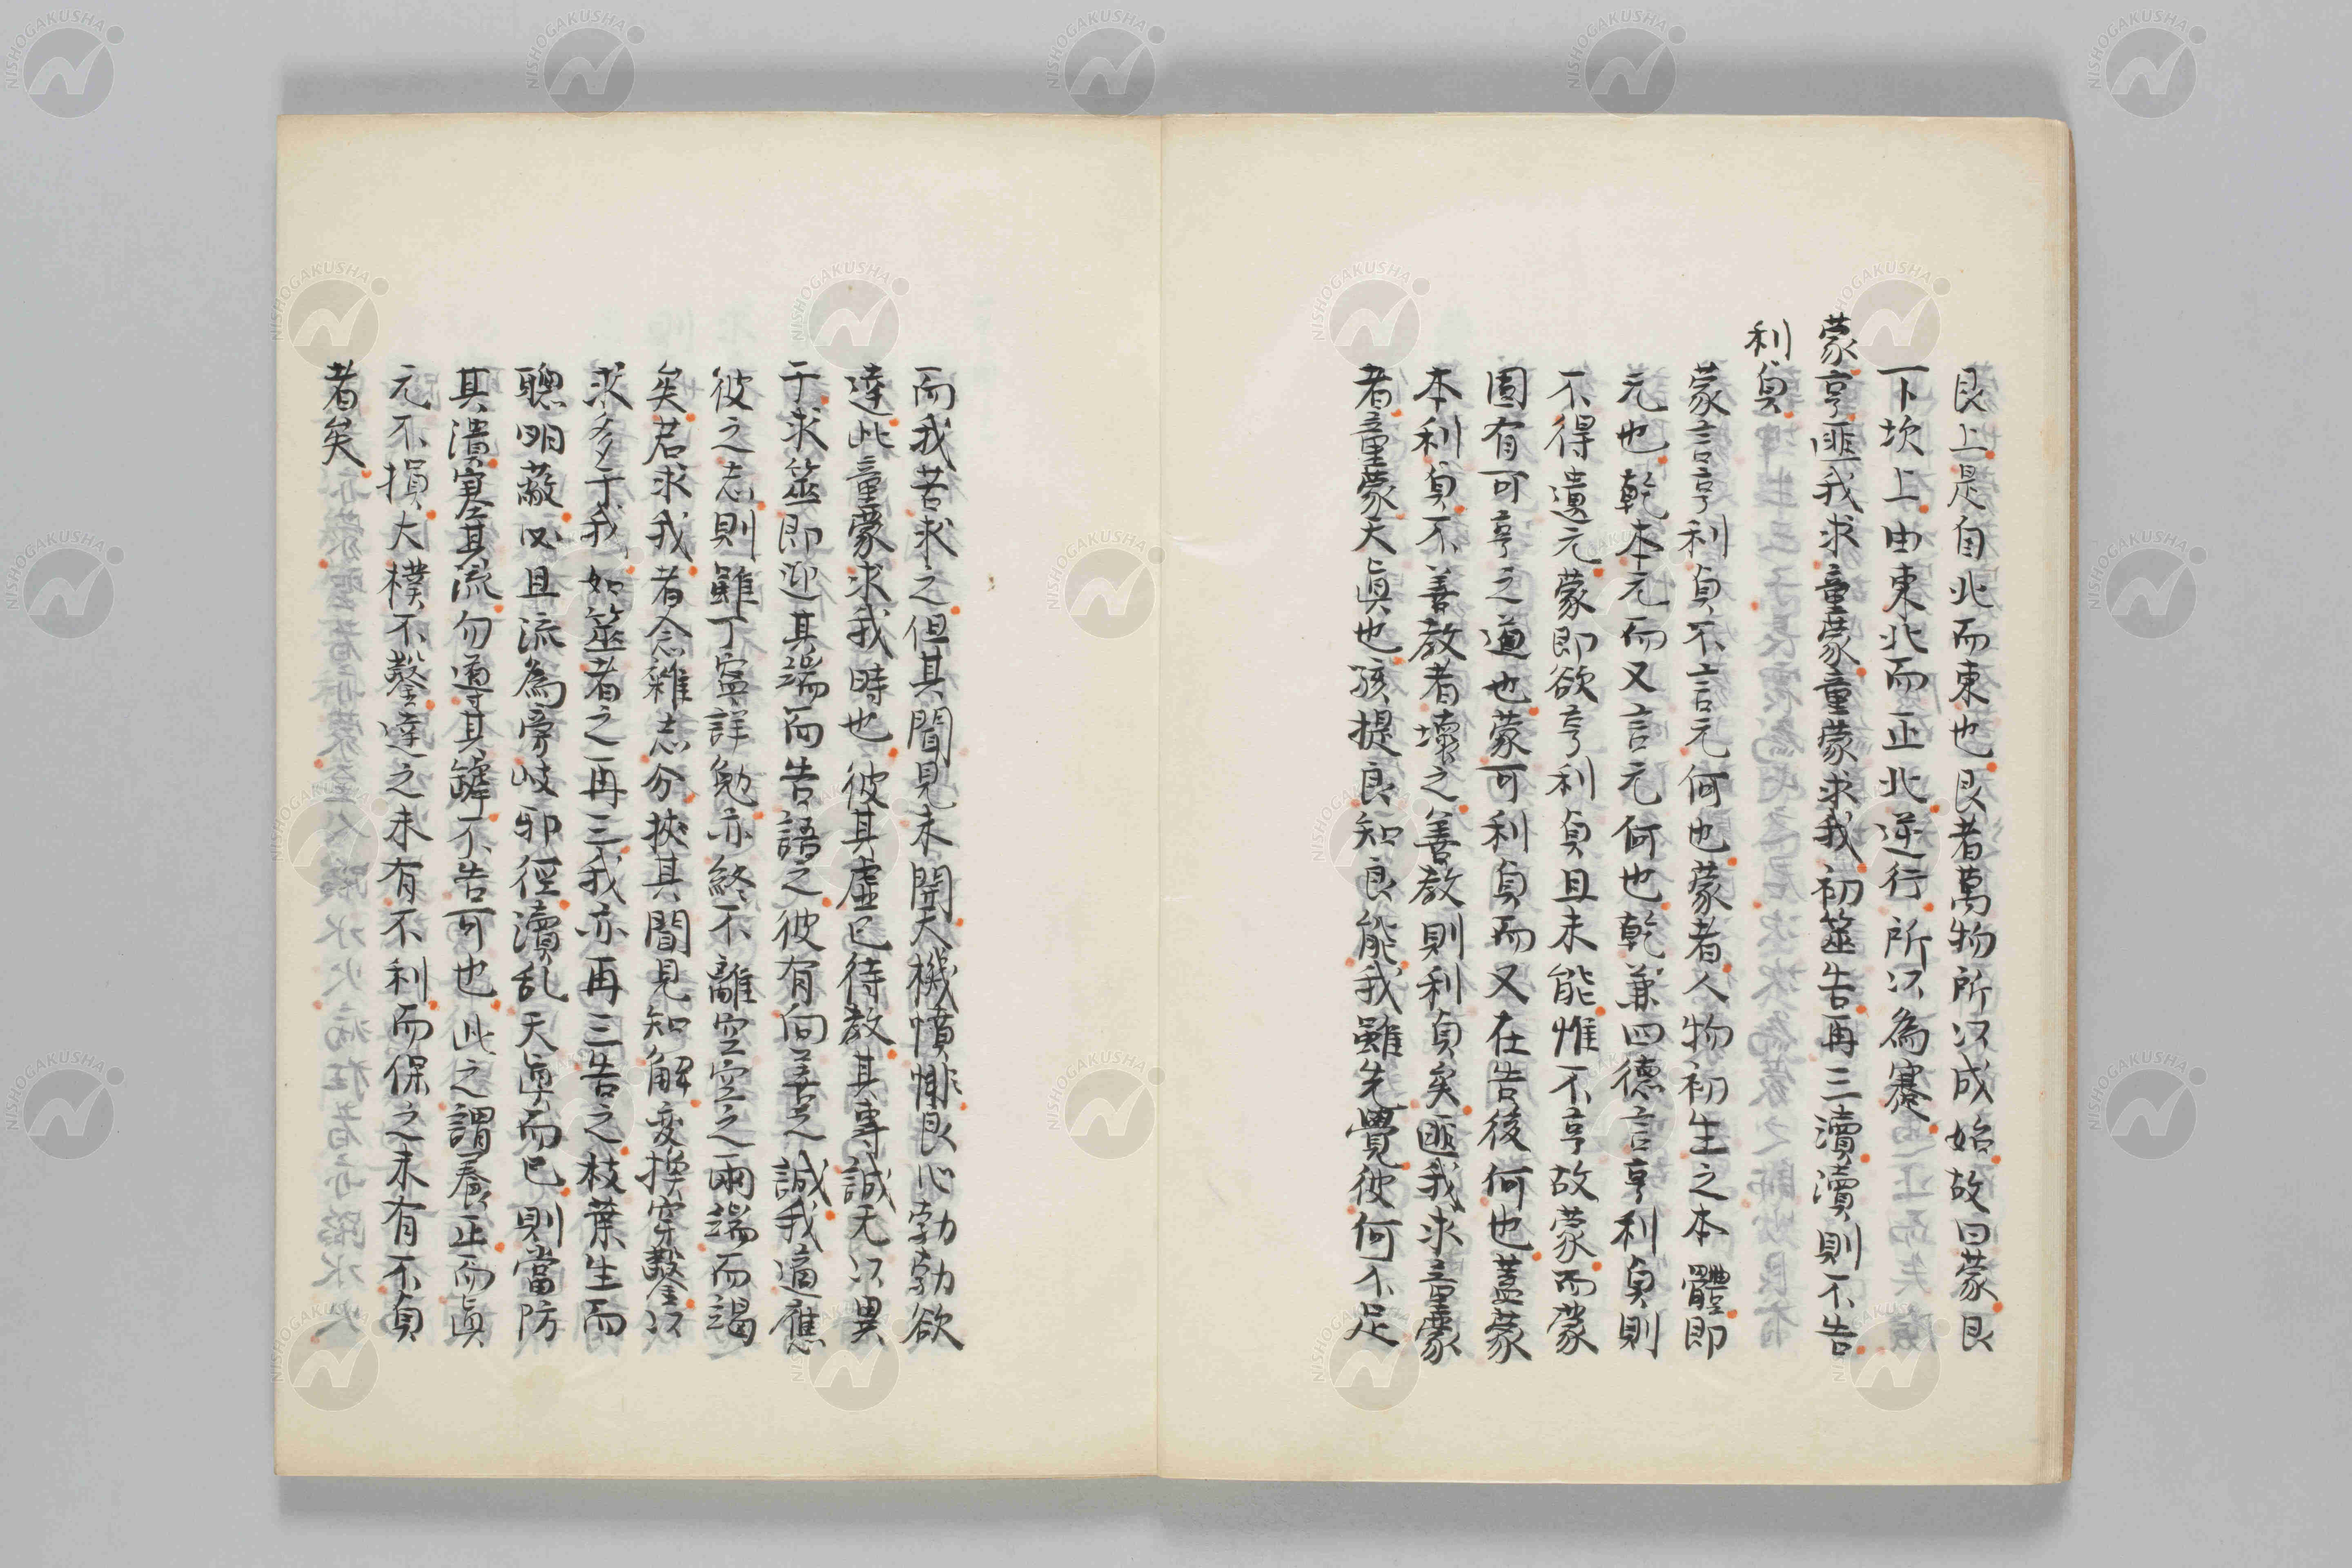 艮上是自北而東也艮者萬物所以成始故曰蒙艮
下坎上由東北而正北逆行所以為蹇
蒙亨匪我求童蒙童蒙求我初筮告再三瀆瀆則不告
利貞
蒙言亨利貞不言元何也蒙者人物初生之本體即
元也乾本元而又言元何也乾兼四德言亨利貞則
不得遺元蒙即欲亨利貞且未能惟不亨故蒙而蒙
固有可亨之道也蒙可利貞而又在告後何也蓋蒙
本利貞不善教者壞之善教則利貞矣匪我求童蒙
者童蒙天真也孩提良知良能我雖先覺彼何不足
而我苦求之但其聞見未開天機憤悱良心勃勃欲
達此童蒙求我時也彼其虛已待教其專誠无以異
于求筮即迎其端而告語之彼有向善之誠我適應
彼之志則雖丁寧詳勉亦終不離空空之兩端而竭
矣若求我者念雜志分挾其聞見知解变換穿鑿以
求多于我如筮者之再三我亦再三告之枝葉生而
聰明蔽必且流為旁岐邪徑瀆乱天真而已則當防
其潰塞其流勿導其罅不告可也此之謂養正而真
元不損大樸不鑿達之未有不利而保之未有不貞
者矣
NISHOGAKUSHA